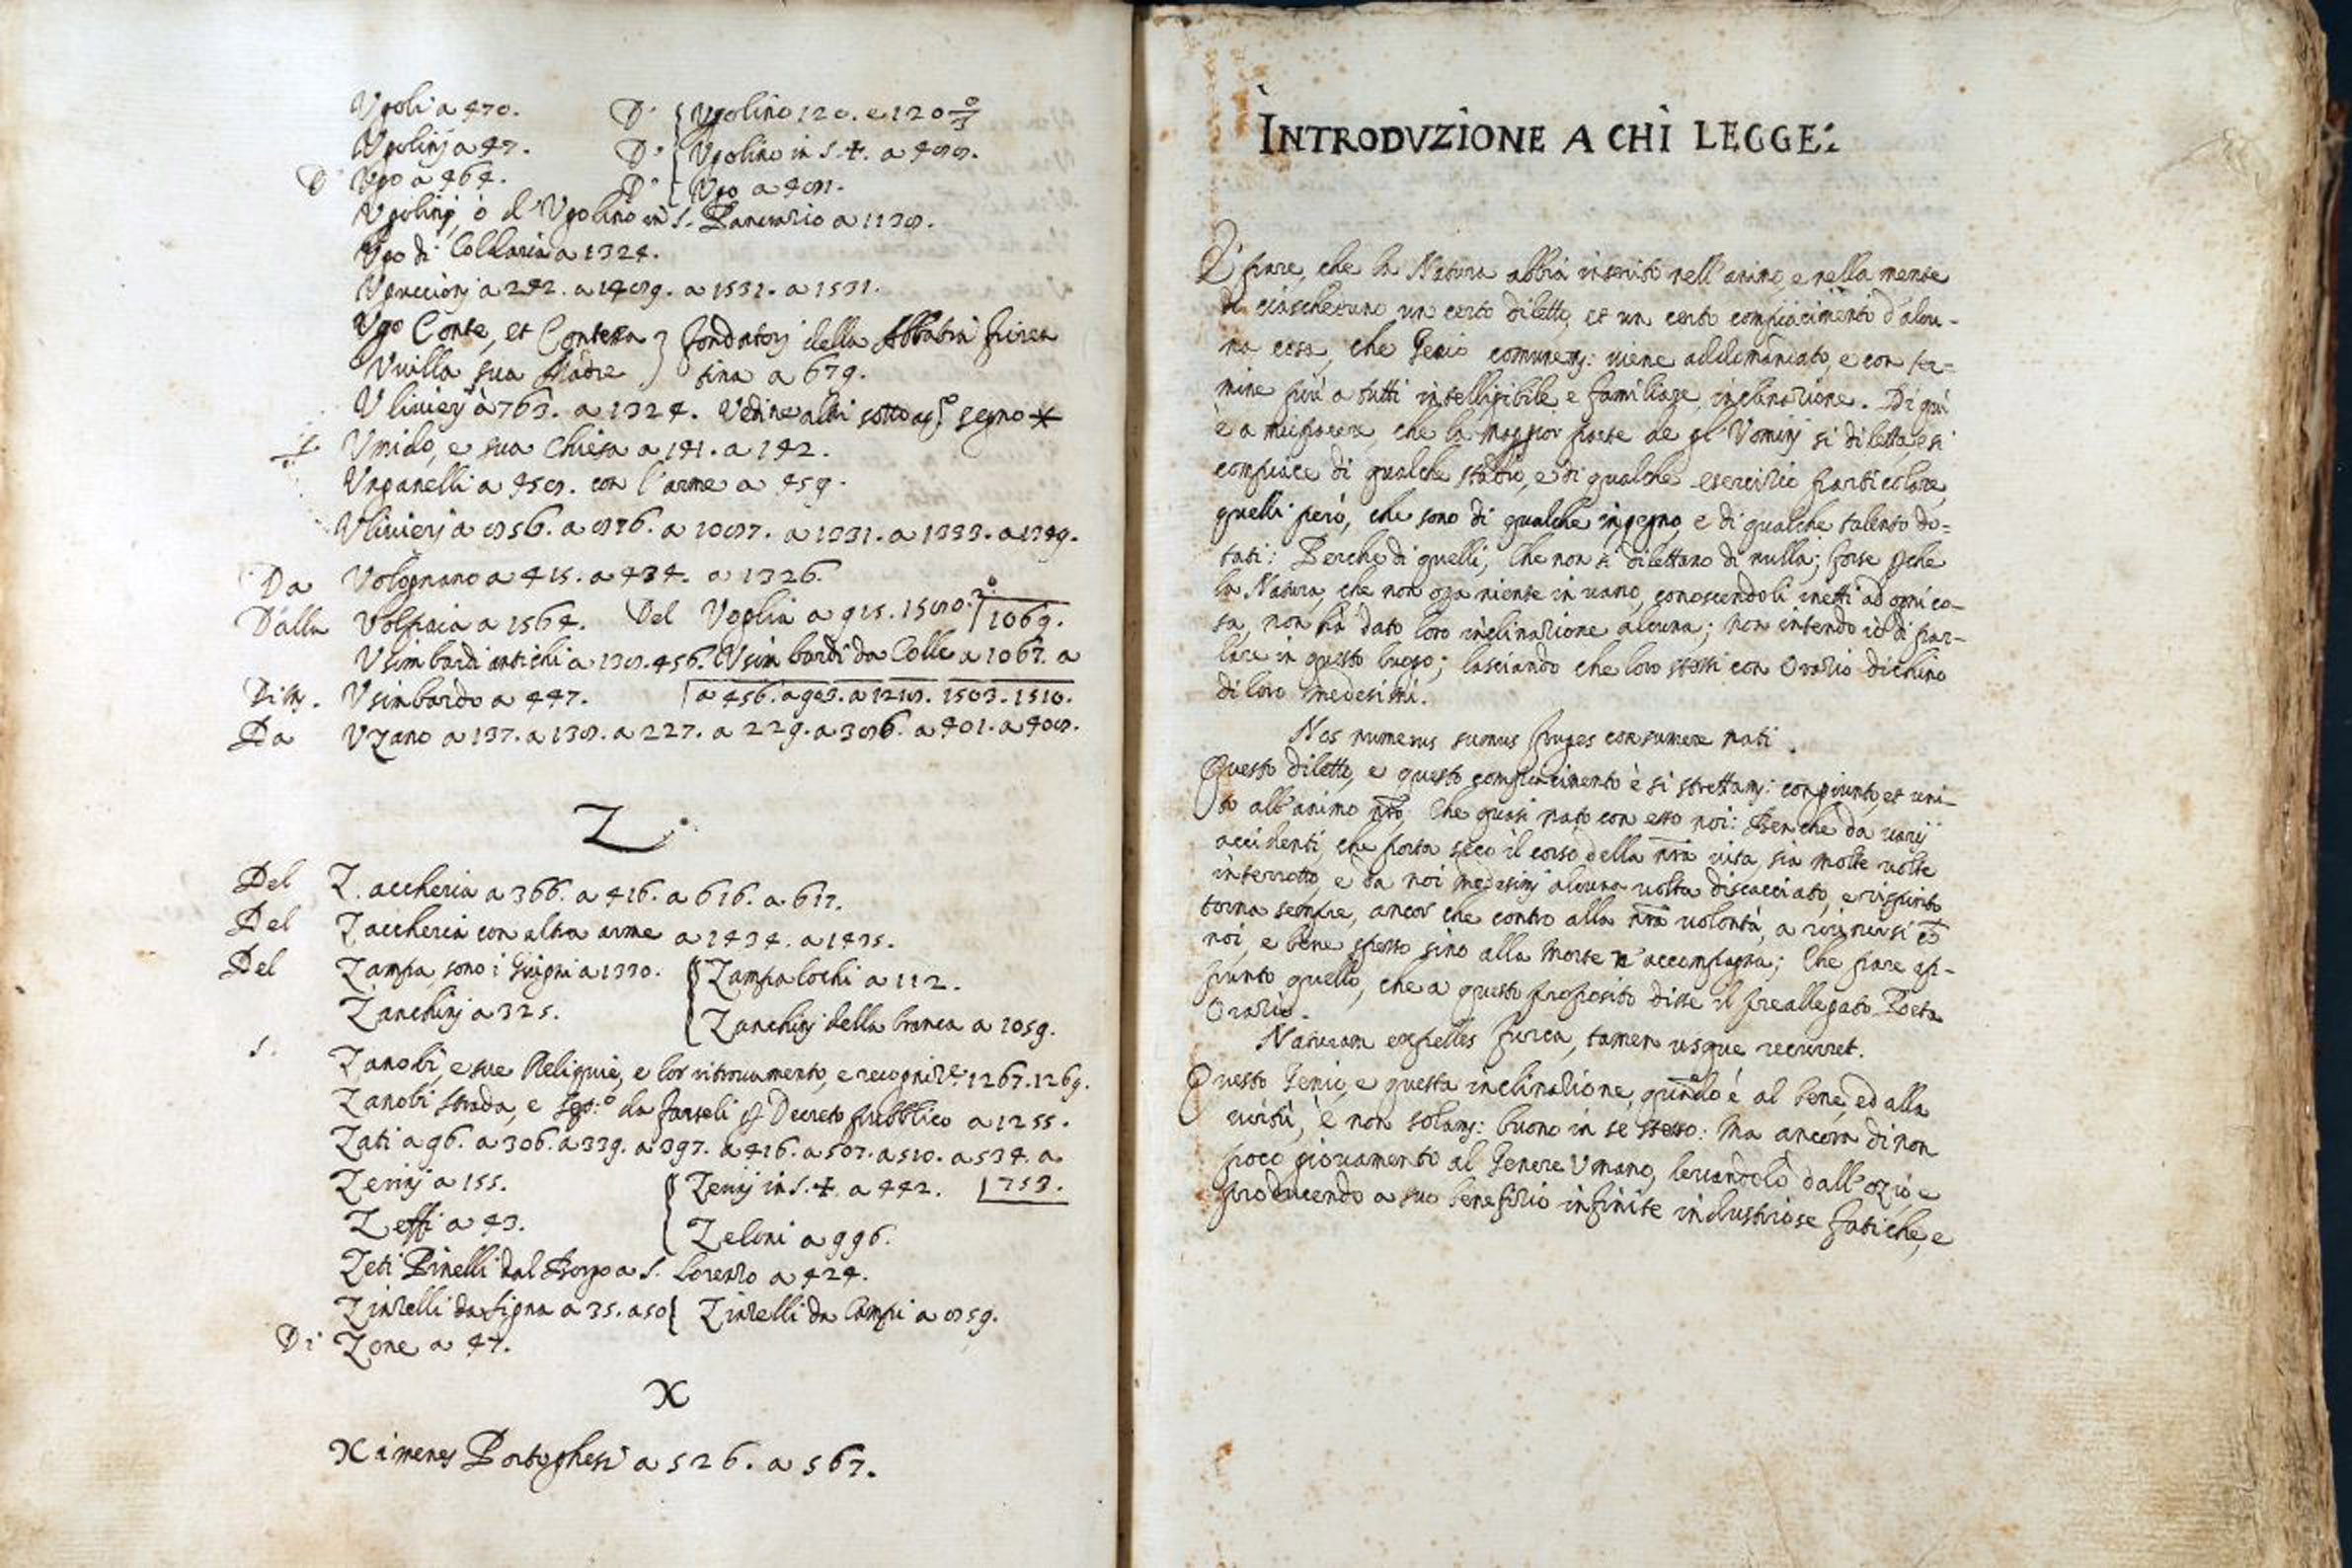 Vgoli a 470. D' { Vgolino 120. e 120
Vgolinj a 47. D' { Vgolino in S. +. a 488.
D' Vgo a 464. D' { Vgo a 481.
Vgolinj, ò d'Vgolino in S. Pancrazio a 1138.
Vgo di Collaria a 1324.
Vguccionj a 242. a 1489. a 1531. a 1531.
Vgo Conte, et Contessa } fondatorj della Abbatia fioren
Vuilla sua Madre } tina a 679.
Vliuierj à 763. a 1324. Vedine altri sotto segno *
Vmido, e sua Chiesa a 141. a 142.
Vnganelli a 458. con l'arme a 459.
Vliuierj a 856. a 876. a 1087. a 1331. a 1333. a 1349.
Da Volognano a 415. a 434. a 1326.
Dalla Volpaia a 1564. Del Voglia a 915. 1580.
1069.
Vsimbardi antichi a 138. 456. Vsimbardi da Colle a 1067. a
Vsimbardo a 447. a 456. a 903. a 1218. 1503. 1510.
Da Vzano a 137. a 138. a 227. a 229. a 386. a 401. a 408.
Z
Del Zaccheria a 366. a 416. a 616. a 617.
Del Zaccheria con altra arme a 1434. a 1435.
Del Zampa, sono i Giugni a 1330. { Zampalochi a 112.
Zanchinj a 325. { Zanchinj della branca a 1059.
S. Zanobi, e sue Reliquie, e lor ritrouamento, e recognize. 1267. 1269.
Zanobi Strada, e da farseli p Decreto pubblico a 1255.
Zati a 96. a 306. a 339. a 397. a 416. a 507. a 510. a 534. a
Zerinj a 155. { Zerinj in S. +. a 442. 753.
Zeffi a 43. { Zeloni a 996.
Zeti Pinelli dal Borgo a S. Lorenzo a 424.
Zinzelli da Signa a 35. a 50 { Zinzelli da Campi a 859.
Di Zone a 47.
X
Ximenes Portughesi a 526. a 567.
INTRODVZIONE A CHI LEGGE:
E' pare, che la Natura abbia inserito nell'animo, e nella mente
di ciascheduno un certo diletto, et un certo compiacimento d'alcu-
na cosa, che Genio comunem: uiene addomandato, e con ter=
mine più a tutti intelligibile e familiare, inclinazione. Di qui
è a mio parere, che la maggior parte de gl'Vominj si diletta, e si
compiace di qualche studio, e di qualche esercizio particolare,
quelli però, che sono di qualche ingegno, e di qualche talento do=
tati: Perche di quelli, che non si dilettano di nulla; forse pche
la Natura, che non opa niente in uano, conoscendoli inetti ad ogni co-
sa, non hà dato loro inclinazione alcuna; non intendo iò di par-
lare in questo luogo; lasciando che loro stessi con Orazio dichino
di loro medesimi.
Nos numerus sumus fruges consumere nati.
Questo diletto, e questo compiacimento è si strettam: congiunto, et uni-
to all'animo nro, che quasi nato con esso noi: Benche da uarij
accidenti, che porta seco il corso della nra uita, sia molte uolte
interrotto, e da noi medesimj alcuna uolta discacciato, e rispinto
torna sempre, ancor che contro alla nra uolontà, a riunirsi cō
noi, e bene spesso sino alla morte n'accompagna; che pare ap-
punto quello, che a questo proposito disse il preallegato Poeta
Orazio.
Naturam expelles furca, tamen usque recurret.
Questo Genio, e questa inclinazione, quando è al bene, ed alla
uirtù, è non solam: buono in se stesso: ma ancora di non
poco giouamento al Genere Vmano, leuandolo dall'ozio e
producendo a suo benefizio infinite industriose fatiche, e